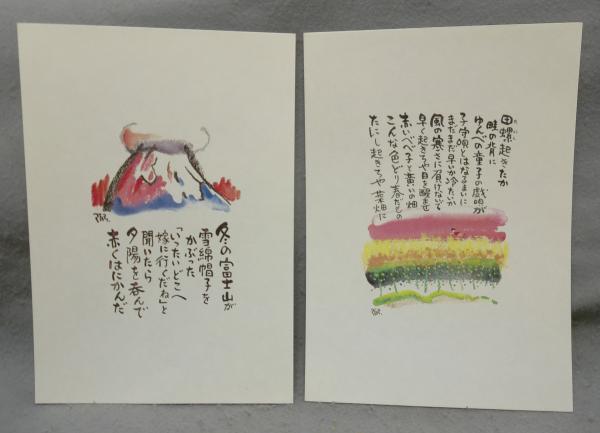 冬の富士山が
雪綿帽子を
かぶった
「いったいどこへ
嫁に行くだね」と
聞いたら
夕陽を呑んで
赤くはにかんだ
田螺起きたか
畦の背に
ゆんべの童子の戯唄が
子守唄とはなるまいに
まだまだ早いか冷たいか
風の寒さに負けないで
早く起きちゃ目を醒ませ
赤いべべ子と黄いの畑
こんな色どり春だもの
たにし起きちゃ菜畑に